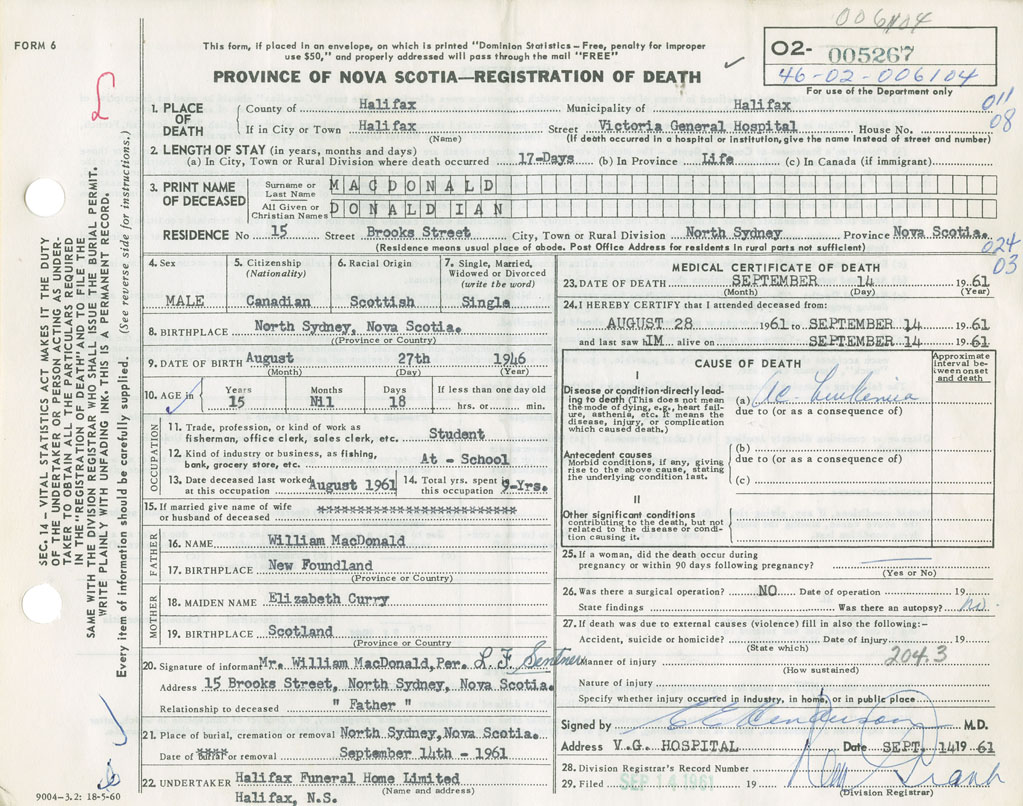 006104
FORM 6
This form, if placed in an envelope, on which is printed "Dominion Statistics – Free, penalty for improper
use $50," and properly addressed will pass through the mail "FREE"
02- 005267
46-02-006104
For use of the Department only
PROVINCE OF NOVA SCOTIA—REGISTRATION OF DEATH
1. PLACE OF DEATH
County of Halifax Municipality of Halifax 011
If in City or Town Halifax Street Victoria General Hospital House No. 08
(Name) (If death occurred in a hospital or institution, give the name instead of street and number)
2. LENGTH OF STAY (in years, months and days)
(a) In City, Town or Rural Division where death occurred 17-Days (b) In Province Life (c) In Canada (if immigrant)
3. PRINT NAME OF DECEASED
Surname or Last Name MACDONALD
All Given or Christian Names DONALD IAN
RESIDENCE No 15 Street Brooks Street City, Town or Rural Division North Sydney Province Nova Scotia.
(Residence means usual place of abode. Post Office Address for residents in rural parts not sufficient) 024
03
4. Sex MALE
5. Citizenship (Nationality) Canadian
6. Racial Origin Scottish
7. Single, Married, Widowed or Divorced (write the word) Single
8. BIRTHPLACE North Sydney, Nova Scotia.
(Province or Country)
9. DATE OF BIRTH August 27th 1946
(Month) (Day) (Year)
10. AGE in Years 15 Months Nil Days 18 If less than one day old
hrs. or min.
OCCUPATION
11. Trade, profession, or kind of work as
fisherman, office clerk, sales clerk, etc. Student
12. Kind of industry or business, as fishing,
bank, grocery store, etc. At - School
13. Date deceased last worked at this occupation August 1961 14. Total yrs. spent in this occupation 9-Yrs.
15. If married give name of wife
or husband of deceased ************************
FATHER
16. NAME William MacDonald
17. BIRTHPLACE New Foundland
(Province or Country)
MOTHER
18. MAIDEN NAME Elizabeth Curry
19. BIRTHPLACE Scotland
(Province or Country
20. Signature of informant Mr. William MacDonald, Per. L. F.
Address 15 Brooks Street, North Sydney, Nova Scotia.
Relationship to deceased " Father "
21. Place of burial, cremation or removal North Sydney, Nova Scotia.
Date of burial or removal September 14th - 1961
22. UNDERTAKER Halifax Funeral Home Limited
(Name and address)
Halifax, N.S.
9004-3.2: 18-5-60
MEDICAL CERTIFICATE OF DEATH
23. DATE OF DEATH SEPTEMBER 14 1961
(Month) (Day) (Year)
24. I HEREBY CERTIFY that I attended deceased from:
AUGUST 28 1961 to SEPTEMBER 14 1961
and last saw hIM alive on SEPTEMBER 14 1961
CAUSE OF DEATH
Approximate interval between onset and death
I
Disease or condition directly leading to death (This does not mean the mode of dying, e.g., heart failure, asthenia, etc. It means the disease, injury, or complication which caused death.)
(a) Ac. Leukemia
due to (or as a consequence of)
Antecedent causes
Morbid conditions, if any, giving rise to the above cause, stating the underlying condition last.
(b)
due to (or as a consequence of)
(c)
II
Other significant conditions
contributing to the death, but not related to the disease or condition causing it.
25. If a woman, did the death occur during
pregnancy or within 90 days following pregnancy?
(Yes or No)
26. Was there a surgical operation? NO Date of operation 19
State findings Was there an autopsy? No.
27. If death was due to external causes (violence) fill in also the following:–
Accident, suicide or homicide? Date of injury 19
(State which) 204.3
Manner of injury
(How sustained)
Nature of injury
Specify whether injury occurred in industry, in home, or in public place
Signed by M.D.
Address V.G. HOSPITAL Date SEPT. 14 19 61
28. Division Registrar's Record Number
29. Filed SEP 14 1961 19
(Division Registrar)
SEC. 14 – VITAL STATISTICS ACT MAKES IT THE DUTY
OF THE UNDERTAKER OR PERSON ACTING AS UNDER-
TAKER TO OBTAIN ALL THE PARTICULARS REQUIRED
IN THE "REGISTRATION OF DEATH" AND TO FILE THE
SAME WITH THE DIVISION REGISTRAR WHO SHALL ISSUE THE BURIAL PERMIT.
WRITE PLAINLY WITH UNFADING INK. THIS IS A PERMANENT RECORD.
Every item of information should be carefully supplied. (See reverse side for instructions.)